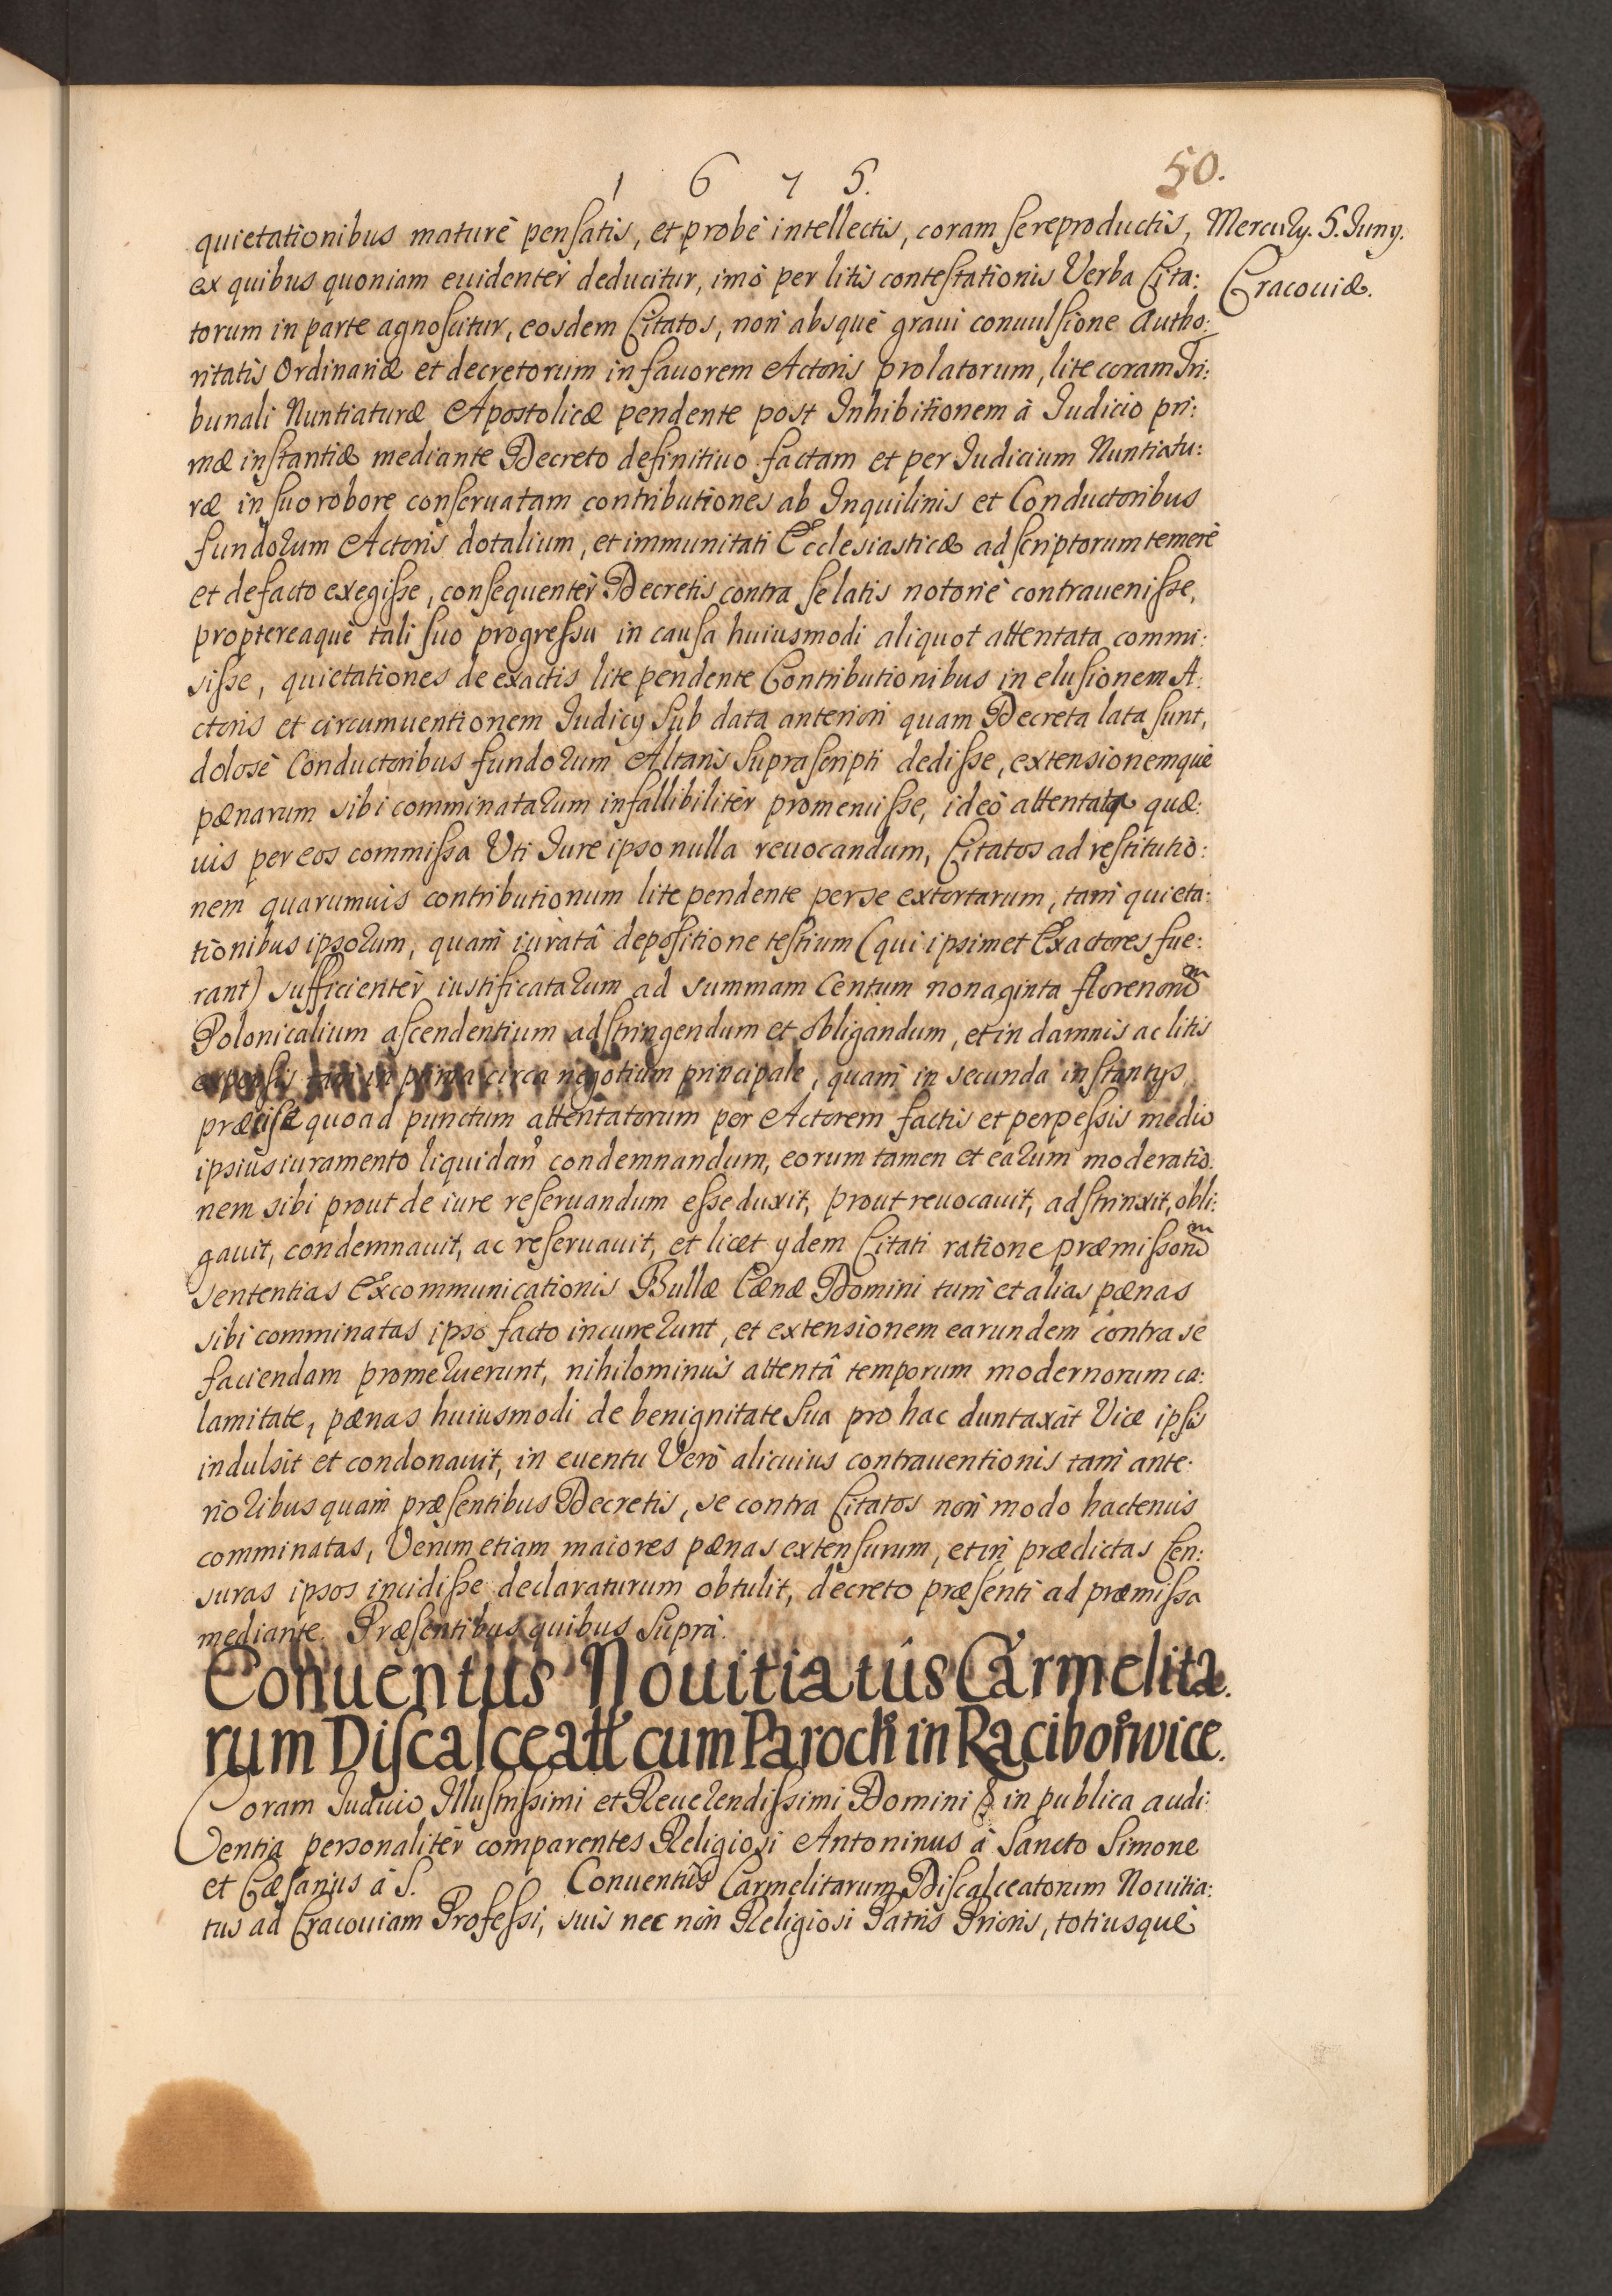 1 6 7 5.
50.
quietationibus maturè pensatis, et probè intellectis, coram se reproductis,
Mercurij. 5. Junij.
Cracouiæ.
ex quibus quoniam euidentèr deducitur, imò per litis contestationis Verba Cita:
torum in parte agnoscitur, eosdem Citatos, non absque graui conuulsione Autho:
ritatis Ordinariæ et decretorum in fauorem Actoris prolatorum, lite coram Tri:
bunali Nuntiaturæ Apostolicæ pendente post Inhibitionem à Iudicio pri:
mæ instantiæ mediante Decreto definitiuo factam et per Iudicium Nuntiatu:
ræ in suo robore conseruatam contributiones ab Inquilinis et Conductoribus
fundorum Actoris dotalium, et immunitati Ecclesiasticæ adscriptorum temerè
et defacto exegisse, consequentèr Decretis contra se latis notoriè contrauenisse,
proptereaquè tali suo progressu in causa huiusmodi aliquot attentata commi:
sisse, quietationes de exactis lite pendente Contributionibus in elusionem A:
ctoris et circumuentionem Iudicij sub data anteriori quam Decreta lata sunt,
dolosè Conductoribus fundorum Altaris suprascripti dedisse, extensionemquè
pænarum sibi comminatarum infallibilitèr promeruisse, ideò attentata quæ:
uis per eos commissa Uti Iure ipso nulla reuocandum, Citatos ad restitutio:
nem quarumuis contributionum lite pendente per se extortarum, tam quieta:
tionibus ipsorum, quam iuratâ depositione testium (qui ipsimet Exactores fue:
rant) sufficientèr iustificatarum ad summam Centum nonaginta florenorũ
Polonicalium ascendentium adstringendum et obligandum, et in damnis ac litis
expensis tam in prima circa negotium principale, quam in secunda instantijs,
præcisè quoad punctum attentatorum per Actorem factis et perpessis medio
ipsius iuramento liquidañ condemnandum, eorum tamen et earum moderatio:
nem sibi prout de iure reseruandum esse duxit, prout reuocauit, adstrinxit, obli:
gauit, condemnauit, ac reseruauit, et licet ijdem Citati ratione præmissorũ
sententias Excommunicationis Bullæ Cænæ Domini tum et alias pænas
sibi comminatas ipso facto incurrerunt, et extensionem earundem contra se
faciendam promeruerunt, nihilominus attentâ temporum modernorum ca:
lamitate, pænas huiusmodi de benignitate sua pro hac duntaxat Vice ipsis
indulsit et condonauit, in euentu Verò alicuius contrauentionis tam ante:
rioribus quam præsentibus Decretis, se contra Citatos non modo hactenus
comminatas, Verum etiam maiores pænas extensurum, et in prædictas Cen:
suras ipsos incidisse declaraturum obtulit, decreto præsenti ad præmissa
mediante. Præsentibus quibus suprà.
Conuentus Nouitiatûs Carmelita.
rum Discalceatt cum Paroch in Raciborwice.
Coram Iudicio Illustrissimi et Reuerendissimi Domini & in publica audi:
entia personalitèr comparentes Religiosi Antoninus à Sancto Simone
et Cæsarius à S. Conuentûs Carmelitarum Discalceatorum Nouitia:
tus ad Cracouiam Professi, suis nec non Religiosi Patris Prioris, totiusquè